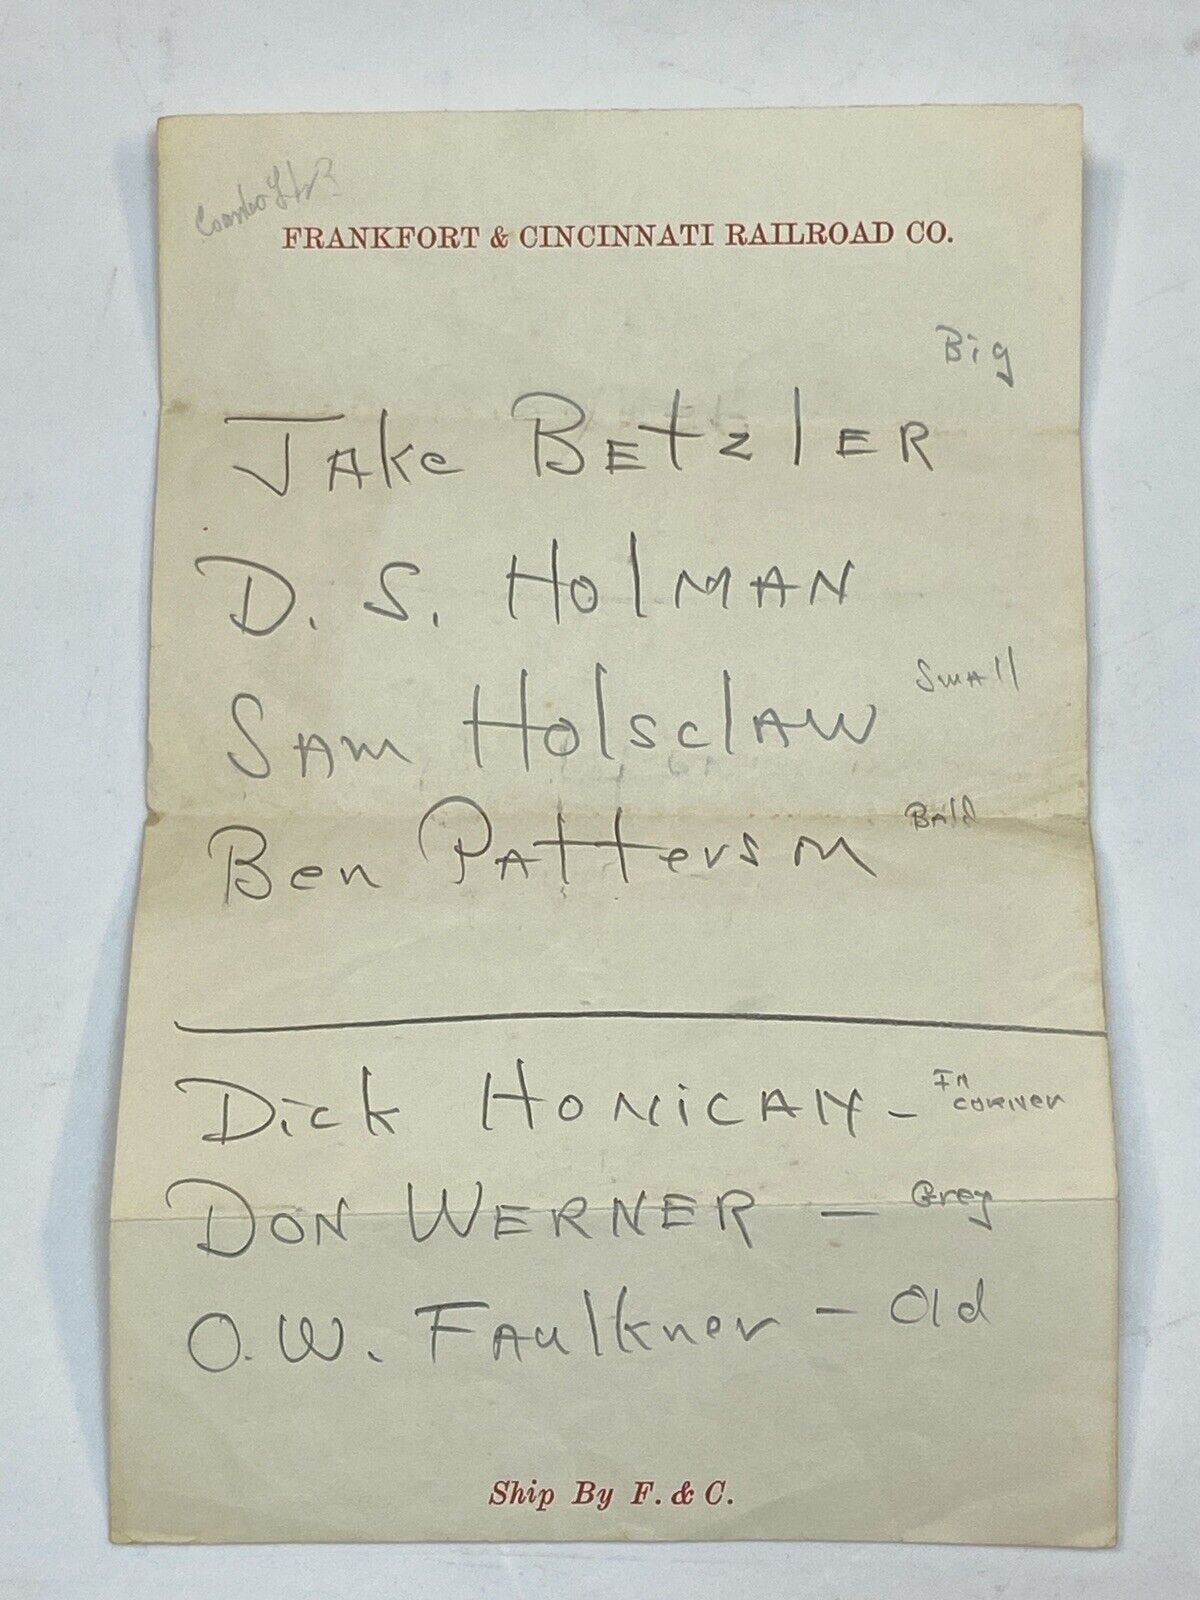 FRANKFORT & CINCINNATI RAILROAD CO.
Big
JAke BEtzlER
D. S. HolMAN
SmAll
SAm HolsclAW
Bald
Ben PAtterson
In
Dick HoNiCAN -
corner
DON WERNER - Grey
O.W. FAulkner - Old
Ship By F. & C.